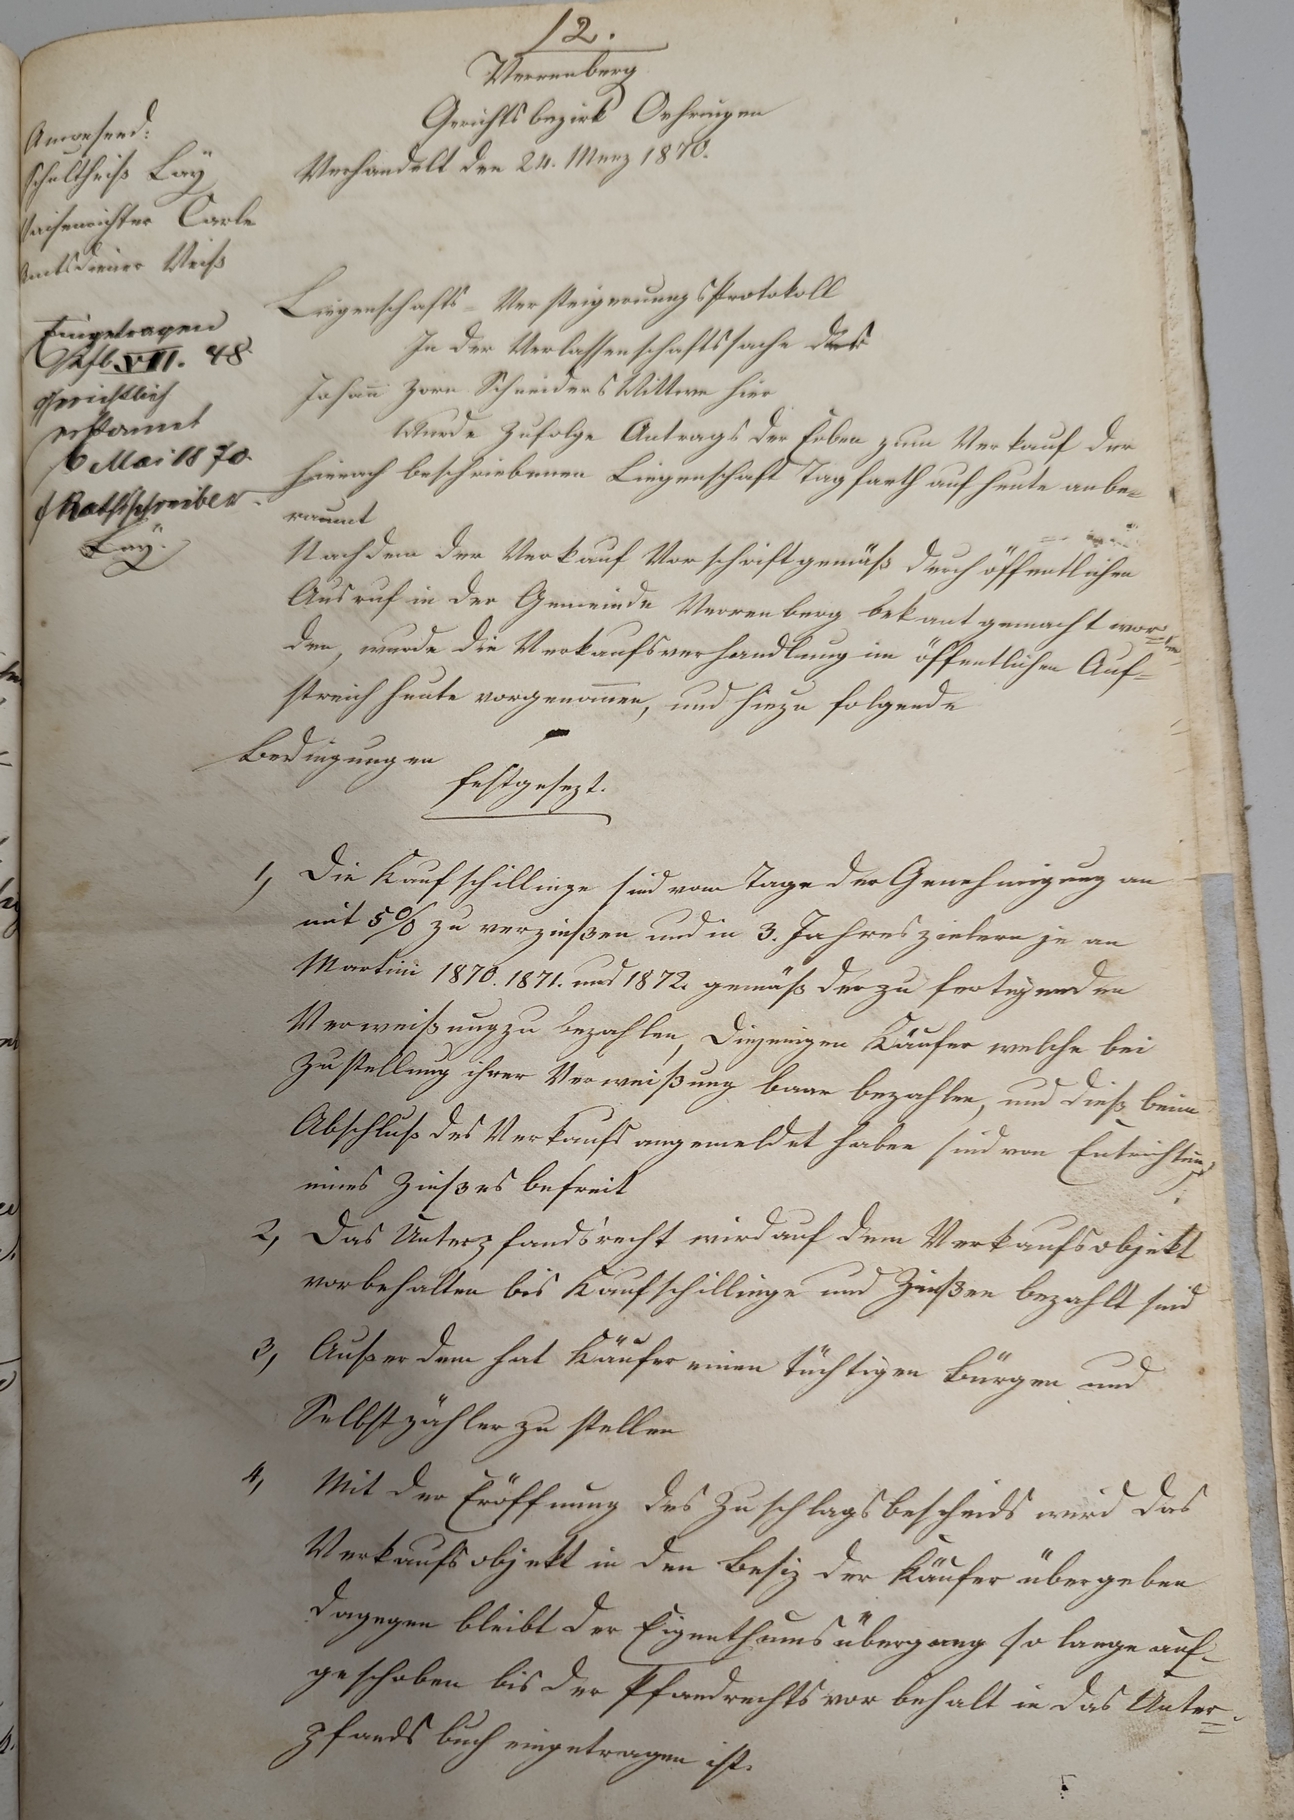 12.
Verrenberg
Gerichtsbezirk Oehringen
Verhandelt den 24. Merz 1870.
Anwesend:
Schultheiß Lay
Waisenrichter Carle
Amtsdiener Weiß
Eingetragen
VII. 48
gerichtlich
erkannt
6 Mai 1870.
Rathsschreiber
Lay.
Liegenschafts-Versteigerungs Protokoll
In der Verlassenschaftssache der
Johann Zorn Schneiders Wittwe hier
Wurde Zufolge Antrags der Erben zum Verkauf der
hienach beschriebenen Liegenschaft Tagfarth auf heute anbe=
raumt
Nachdem der Verkauf Vorschriftgemäß durch öffentlichen
Ausruf in der Gemeinde Verrenberg bekant gemacht wor=
den, wurde die Verkaufsverhandlung im öffentlichen Auf=
streich heute vorgenomen, und hiezu folgende
Bedingungen
festgesezt.
1, Die Kaufschillinge sind vom Tage der Genehmigung an
mit 5% zu verzinßen und in 3. Jahreszielern je an
Martini 1870. 1871. und 1872. gemäß der zu fertigenden
Verweißung zu bezahlen, Diejenigen Käufer welche bei
Zustellung ihrer Verweißung baar bezahlen, und dieß beim
Abschluß des Verkaufs angemeldet haben sind von Entrichtung
eines Zinßes befreit
2, Das Unterpfandsrecht wird auf dem Verkaufsobjekt
vorbehalten bis Kaufschillinge und Zinßen bezahlt sind
3, Außerdem hat Käufer einen tüchtigen Bürgen und
Selbstzähler zu stellen
4, Mit der Eröffnung des Zuschlagsbescheids wird das
Verkaufsobjekt in den Besiz der Käufer übergeben
dagegen bleibt der Eigenthumsübergang so lange auf=
geschoben bis der Pfandrechtsvorbehalt in das Unter=
pfandsbuch eingetragen ist.